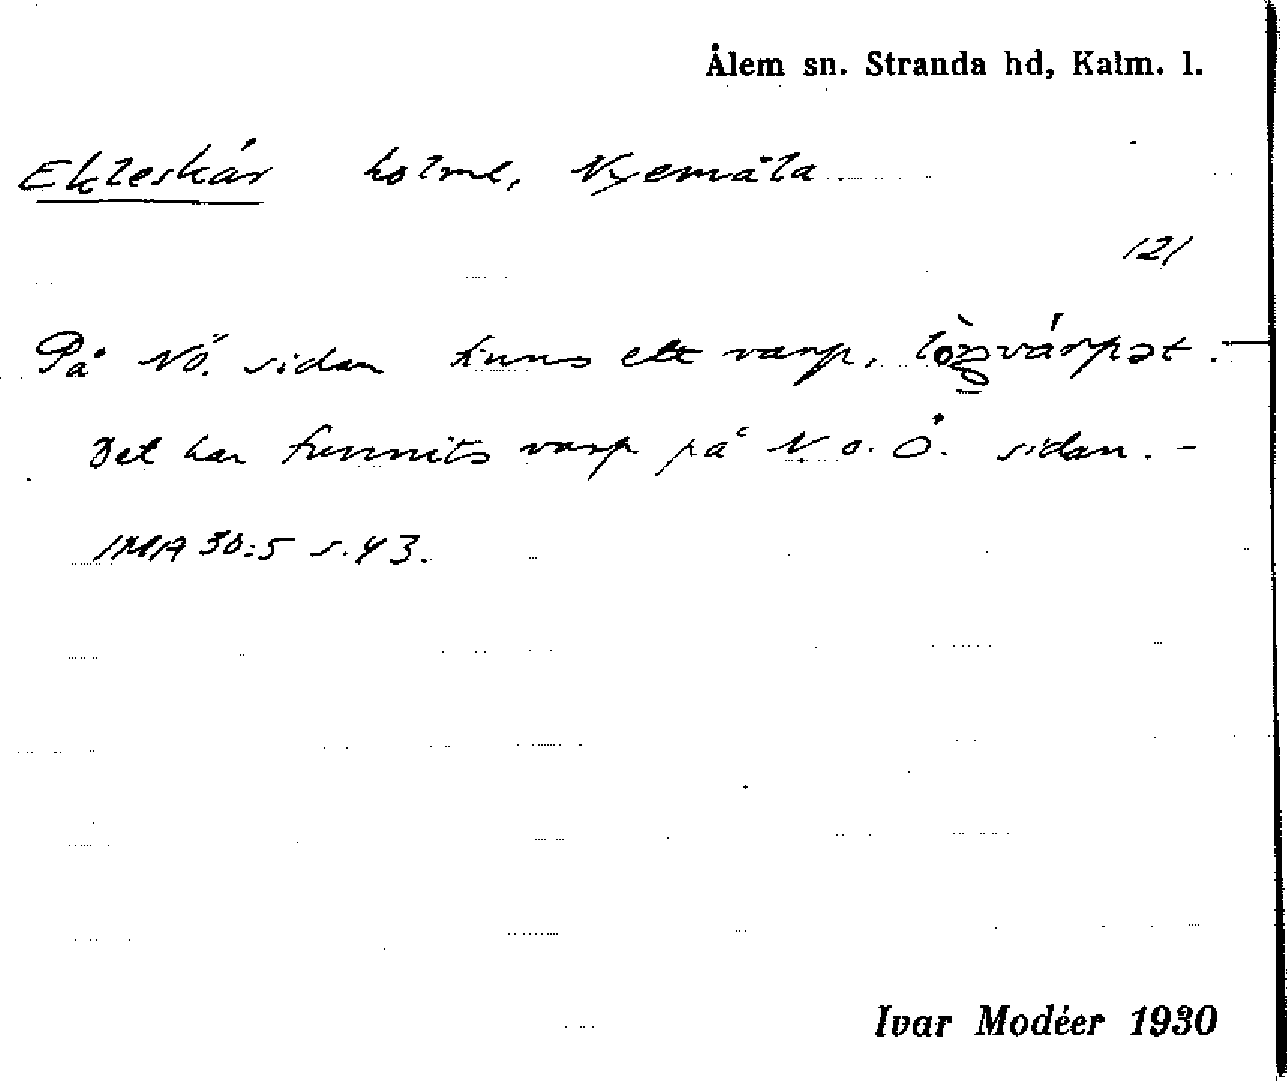 Ålem sn. Stranda hd, Kalm. l.
Ekleskär holme, Nyemåla
121
På NÖ. sidan finns ett varp,
Det har funnits varp på N. o. Ö. sidan. –
IMA 30:5 s. 43.
Ivar Modéer 1930